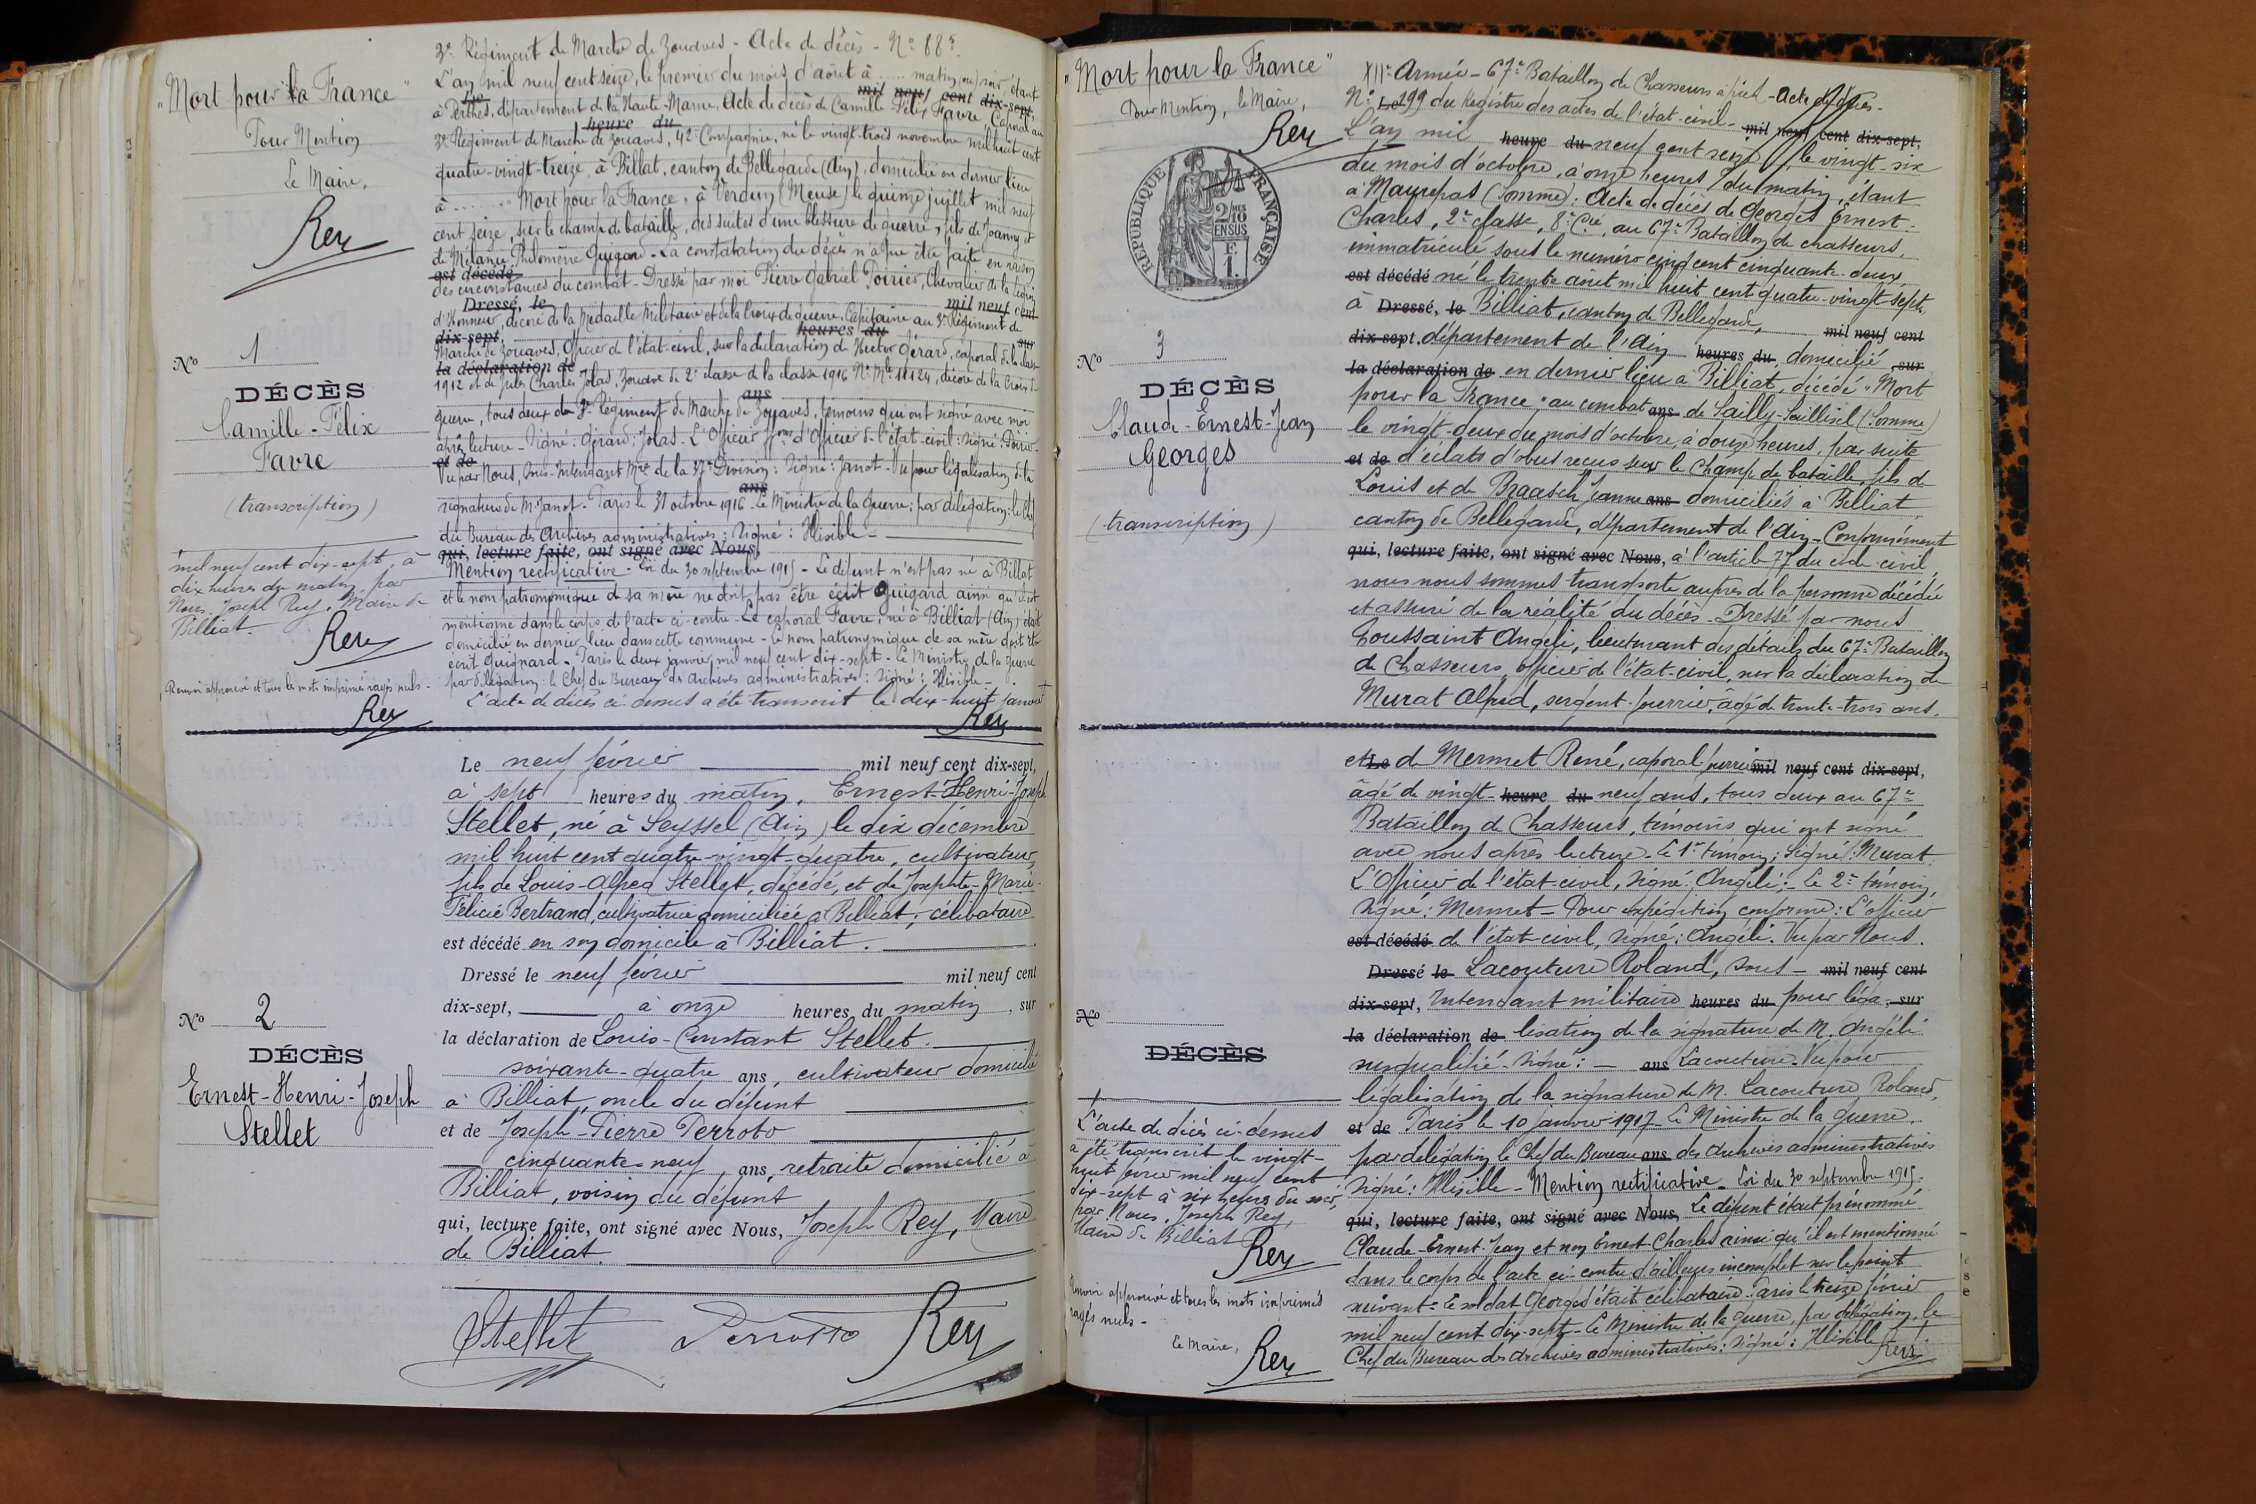 "Mort pour la France"
Pour Mention
Le Maire,
Rey
No 1
DÉCÈS
Camille-Félix
Favre
(transcription)
mil neuf cent dix-sept, à
dix heures du matin par
Nous, Joseph Rey, Maire de
Billiat.
Rey
Renvoi approuvé et tous les mots imprimés rayés nuls.
Rey
3e Régiment de Marche de Zouaves - Acte de décès - No 885
L'an mil neuf cent seize, le premier du mois d'août à ...... matin (ou) soir étant
mil neuf cent dix-sept,
à Perthes, département de la Haute-Marne, Acte de décès de Camille Félix Favre Caporal au
heure du
3e Régiment de Marche de Zouaves, 42e Compagnie, né le vingt-trois novembre mil huit cent
quatre-vingt-treize, à Billat, canton de Bellegarde (Ain), domicilié en dernier lieu
à ........ "Mort pour la France", à Verdun (Meuse) le quinze juillet mil neuf
cent seize, sur le champ de bataille, des suites d'une blessure de guerre, fils de Joanny et
de Mélanie Philomène Guigard - La constatation du décès n'a pu être faite en raison
est décédé
des circonstances du combat - Dressé par moi Pierre Gabriel Poirier, Chevalier de la Légion
Dressé, le mil neuf cent
d'Honneur, décoré de la Médaille Militaire et de la Croix de guerre, Capitaine au 3e Régiment de
dix-sept, heures du sur
Marche de Zouaves, Officier de l'état-civil, sur la déclaration de Hector Gérard, caporal de la classe
la déclaration de
1912 et de Jules Charles Jolas, Zouave de 2e classe de la classe 1916 No Mle 11124, décoré de la Croix de
ans
guerre, tous deux du 3e Régiment de Marche de Zouaves, témoins qui ont signé avec moi
après lecture - Signé: Gérard; Jolas - L'Officier d'Officier de l'état-civil: signé: Poirier
et de
Vu par Nous, Sous-Intendant Mre de la 37e Division: Signé: Janot - Vu pour légalisation de la
ans
signature de M. Janot - Paris le 31 octobre 1916 - Le Ministre de la Guerre; par délégation: le Chef
du Bureau des Archives administratives: Signé: Illisible
qui, lecture faite, ont signé avec Nous,
Mention rectificative - Loi du 30 septembre 1915 - Le défunt n'est pas né à Billat
et le nom patronymique de sa mère ne doit pas être écrit Guigard ainsi qu'il est
mentionné dans le corps de l'acte ci-contre - Le caporal Favre, né à Billiat (Ain) était
domicilié en dernier lieu dans cette commune - Le nom patronymique de sa mère doit être
écrit Guignard - Paris le deux janvier mil neuf cent dix-sept - Le Ministre de la guerre
par délégation: le Chef du Bureau des Archives administratives: Signé: Illisible
L'acte de décès ci-dessus a été transcrit le dix-huit janvier
Rey
No 2
DÉCÈS
Ernest-Henri-Joseph
Stellet
Le neuf février mil neuf cent dix-sept,
à sept heures du matin, Ernest-Henri-Joseph
Stellet, né à Seyssel (Ain) le dix décembre
mil huit cent quatre-vingt-quatre, cultivateur,
fils de Louis-Alfred Stellet, décédé, et de Josephte-Marie-
Félicie Bertrand, cultivatrice domiciliée à Billiat, célibataire
est décédé en son domicile à Billiat.
Dressé le neuf février mil neuf cent
dix-sept, à onze heures du matin, sur
la déclaration de Louis-Constant Stellet.
soixante-quatre ans, cultivateur domicilié
à Billiat, oncle du défunt
et de Joseph-Pierre Perroto
cinquante-neuf, ans, retraité domicilié à
Billiat, voisin du défunt
qui, lecture faite, ont signé avec Nous, Joseph Rey, Maire
de Billiat.
Stellet Perrotto Rey
"Mort pour la France"
Pour Mention, le Maire,
Rey
RÉPUBLIQUE FRANÇAISE
2/10 MES
EN SUS
F.
1.
No 3
DÉCÈS
Claude-Ernest-Jean
Georges
(transcription)
XIIe Armée - 67e Bataillon de Chasseurs à pied - Acte de décès -
No Le 199 du Registre des actes de l'état-civil - mil neuf cent dix-sept,
L'an mil heure du neuf cent seize, le vingt-six
du mois d'octobre, à onze heures du matin étant
à Maurepas (Somme): Acte de décès de Georges Ernest-
Charles, 2e classe, 8e Cie, au 67e Bataillon de chasseurs,
immatriculé sous le numéro cinq cent cinquante-deux,
est décédé né le trente août mil huit cent quatre-vingt-sept,
à Dressé, le Billiat, canton de Bellegarde, mil neuf cent
dix-sept, département de l'Ain heures du, domicilié, sur
la déclaration de en dernier lieu à Billiat, décédé "Mort
pour la France" au combat ans de Sailly-Saillisel (Somme)
le vingt-deux du mois d'octobre, à douze heures, par suite
et de d'éclats d'obus reçus sur le champ de bataille, fils de
Louis et de Braasch Jeanne ans domiciliés à Billiat
canton de Bellegarde, département de l'Ain - Conformément
qui, lecture faite, ont signé avec Nous, à l'article 77 du code civil,
nous nous sommes transporté auprès de la personne décédée
et assuré de la réalité du décès - Dressé par nous
Toussaint Angéli, lieutenant des détails du 67e Bataillon
de Chasseurs, officier de l'état-civil, sur la déclaration de
Murat Alfred, sergent-fourrier, âgé de trente-trois ans,
No
DÉCÈS
L'acte de décès ci-dessus
a été transcrit le vingt-
huit février mil neuf cent
dix-sept à six heures du soir,
par Nous, Joseph Rey,
Maire de Billiat
Rey
Renvoi approuvé et tous les mots imprimés
rayés nuls -
Le Maire,
Rey
et Le de Mermet René, caporal fourrier mil neuf cent dix-sept,
âgé de vingt-heure du neuf ans, tous deux au 67e
Bataillon de Chasseurs, témoins qui ont signé
avec nous après lecture. Le 1er témoin; Signé: Murat
L'Officier de l'état-civil, signé: Angéli: - Le 2e témoin,
signé: Mermet - Pour expédition conforme: L'officier
est décédé de l'état-civil, signé: Angéli. Vu par Nous.
Dressé le Lacouture Roland, sous- mil neuf cent
dix-sept, Intendant militaire heures du pour léga-, sur
la déclaration de lisation de la signature de M. Angéli
susqualifié. Signé: - ans Lacouture. Vu pour
légalisation de la signature de M. Lacouture Roland,
et de Paris le 10 janvier 1917 - Le Ministre de la guerre,
par délégation le Chef du Bureau ans des Archives administratives
Signé: Illisible - Mention rectificative - Loi du 30 septembre 1915.
qui, lecture faite, ont signé avec Nous, Le défunt était prénommé
Claude-Ernest-Jean et non Ernest-Charles ainsi qu'il est mentionné
dans le corps de l'acte ci-contre d'ailleurs incomplet sur le point
suivant: le soldat Georges était célibataire. Paris le treize février
mil neuf cent dix-sept - Le Ministre de la guerre, par délégation, le
Chef du Bureau des Archives administratives: Signé: Illisible
Rey